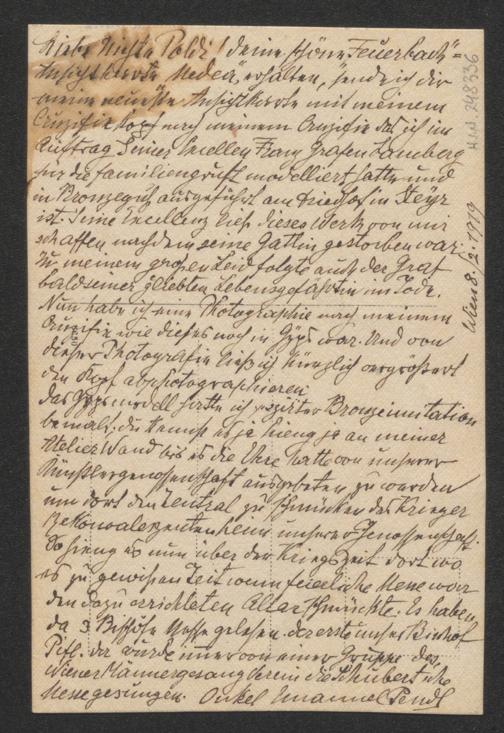 Liebe Nichte Poldi! deine schöne "Feuerbach"=
Ansichtkarte Medea, erhalten, sende ich dir
meine neueste Ansichtkarte mit meinem
Cruzifixkopf nach meinem Cruzifix das ich im
Auftrag Seiner Excellenz Franz Grafen Lamberg
für die familiengruft modelliert hatte und
in Bronzeguss ausgeführt am Friedhof in Steyr
ist. Seine Excellenz liess dieses Werk von mir
schaffen nachdem seine Gattin gestorben war.
Zu meinem grossen Leid folgte auch der Graf
bald seiner geliebten Lebensgefährtin im Tode.
Nun habe ich eine Photographie nach meinem
Cruzifix wie dieses noch in Gyps war. Und von
dieser Photografie liess ich kürzlich vergrössert
den Kopf abphotographieren.
Das Gypsmodell hatte ich Bronzeimitation
bemalt, du kennst es ja hieng ja an meiner
Atelier Wand bis es die Ehre hatte von unserer
Künstlergenossenschaft ausgebeten zu werden
um dort den Zentral zu schmücken des Krieger
Rekonvaleszentenheim unserer Genossenschaft.
So hieng es nun über der Kriegszeit dort wo
es zu gewissen Zeit wenn feierliche Messe war
den dazu errichteten Altar schmückte. Es haben
da 3 Bischöfe Messe gelesen. der erste unser Bischof
Pifl. da wurde immer von einer Gruppe des
Wiener Männergesang Verein die Schubert'sche
Messe gesungen. Onkel Emanuel Pendl
Wien 8./2. 1919
H.I.N. 248336